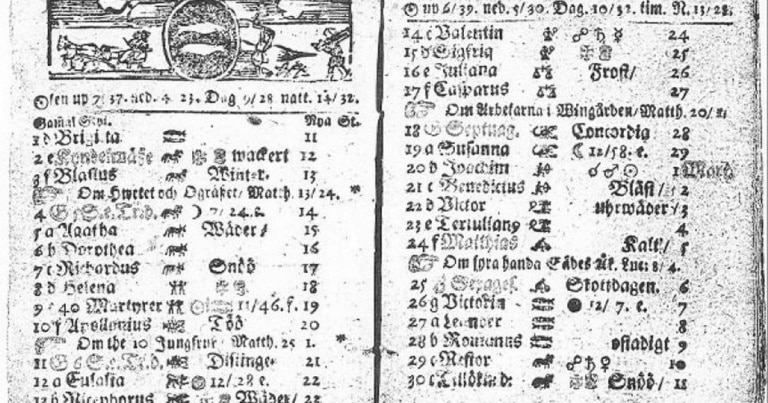 Solen up 7/37. ned. 4 23. Dag 9/28 natt. 14/32.
Gamal Styl. Nya St.
1 d Brigita 11
2 e Kyndelmässe wackert 12
3 f Blasius Winter. 13
Om Hwetet och Ogräset/ Matth. 13/24. *
4 G 5 S. e. Tr. d. ☽ 7/24. f. 14
5 a Agatha Wäder/ 15
6 b Dorothea 16
7 c Richardus Snöö 17
8 d Helena 18
9 e 40 Martyrer 11/46. f. 19
10 f Apollonius Töö 20
Om the 10 Jungfrur Matth. 25 1. *
11 G 6 S. e. Tr. d. Disting. 21
12 a Eulalia 12/28 e. 22
13 b Nicephorus Wäder/ 23
☉ up 6/39. ned. 5/30. Dag. 10/32. tim. N. 13/28.
14 c Valentin ☍ ♄ ☿ 24
15 d Sigfrid 25
16 e Juliana Frost/ 26
17 f Casparus 27
Om Arbetarna i Wingården/ Matth. 20/1.
18 G Septuag. Concordia 28
19 a Susanna ☾ 12/58. e. 29
20 b Joachim ☌ ♂ ☉ 1 Mars.
21 c Benedictus Blåst/ 2
22 d Victor uhrwäder/ 3
23 e Tertulian9 4
24 f Matthias Kalt/ 5
Om fyra handa Sädes Åk. Luc: 8/4.
25 G Sexages. Skottdagen. 6
26 g Victorin ● 12/7. e. 7
27 a Leander 8
28 b Romanus ostadigt 9
29 c Nestor ☍ ♄ ♀ 10
30 c Tillökn d: Snöö/ 11